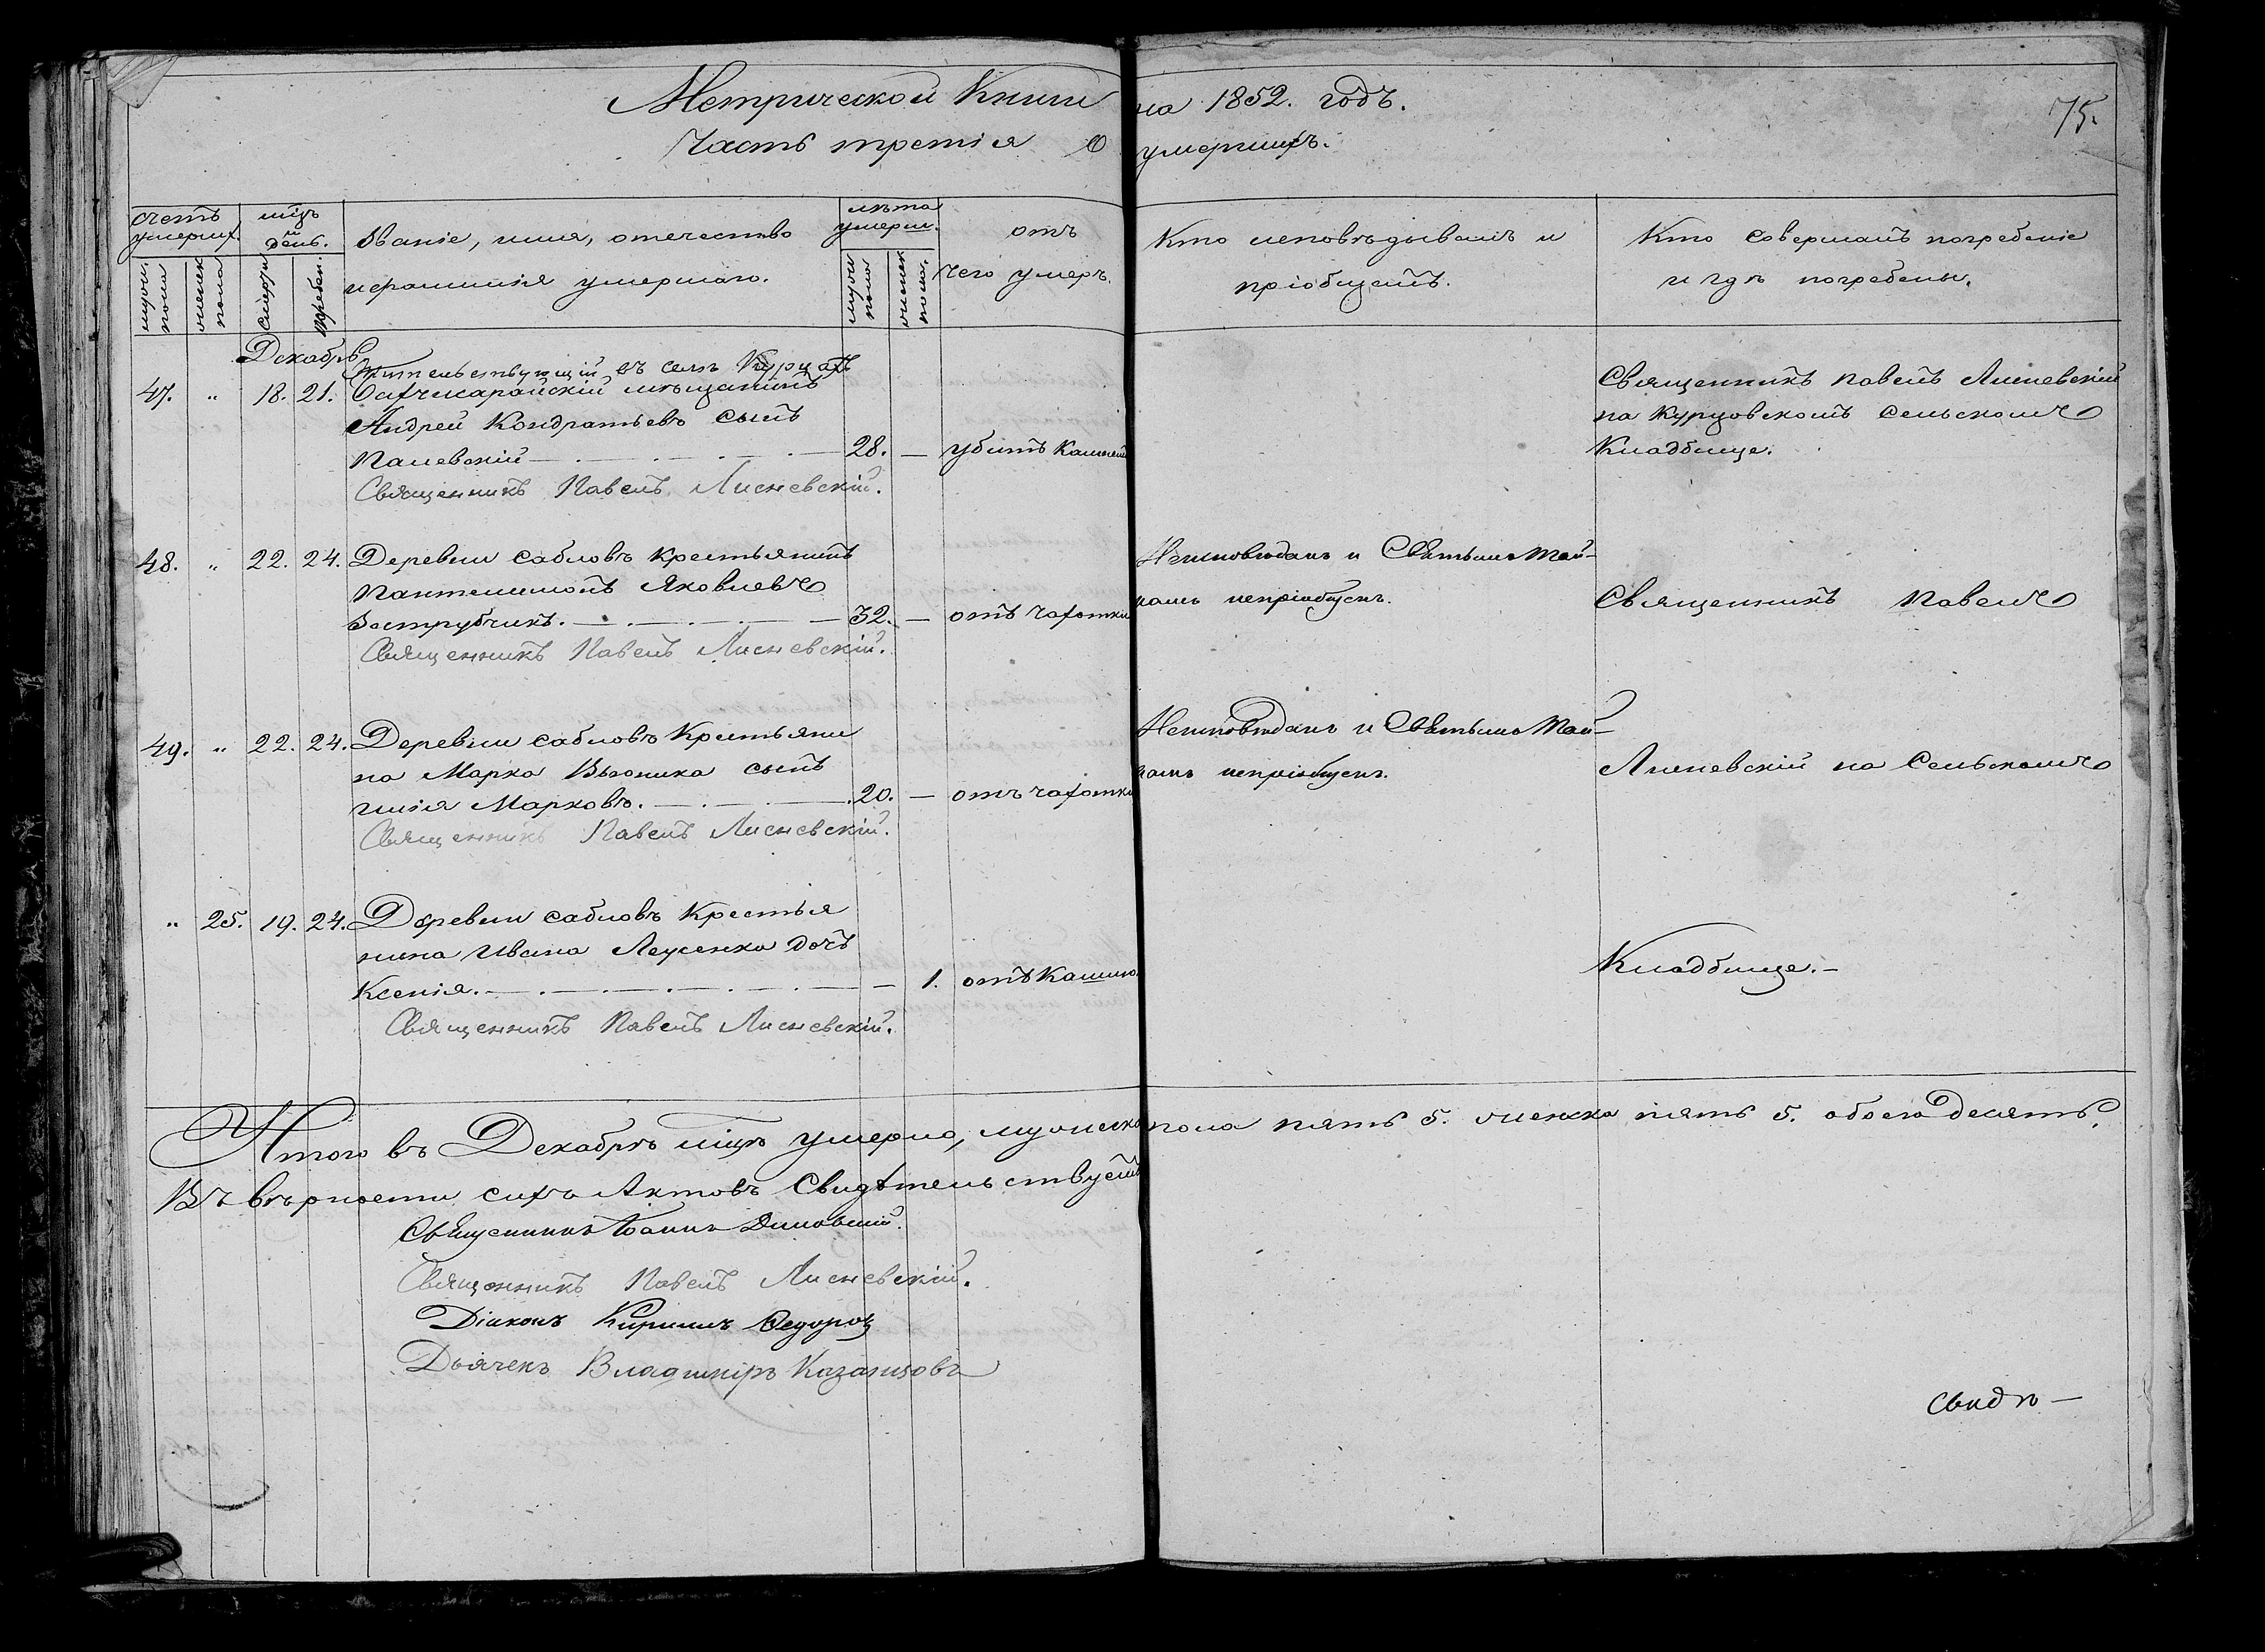 Метрической Книги на 1852. годъ.
Часть третія о умершихъ.
75.
счетъ умерших.
мѣцъ и день.
Званіе, имя, отечество
и фамилія умершаго.
лѣта умерш.
отъ
чего умеръ.
Кто исповѣдывалъ и
пріобщалъ.
Кто совершалъ погребеніе
и гдѣ погребены.
муж. пола
женск пола
смерти
погребен.
муж. пола
женск пола.
Декабрь
Жительствующій въ селѣ Курцахъ
47. " 18. 21. Бахчисарайскій мѣщанинъ
Андрей Кондратьевъ сынъ
Палевскій 28. — убитъ камнемъ
Священникъ Павелъ Лисневскій.
Священникъ Павелъ Лисневскій
на Курцовскомъ сельскомъ
Кладбище.
48. " 22. 24. Деревни Сабловъ крестьянинъ
Пантелимонъ Яковлевъ
Заструбчикъ. 32. — отъ чахотки
Священникъ Павелъ Лисневскій.
Неисповѣданъ и Святымъ Тай-
намъ непріобщенъ.
Священникъ Павелъ
49. " 22. 24. Деревни Сабловъ Крестьяни
на Марка Вьюника сынъ
Илія Марковъ. 20. — отъ чахотки
Священникъ Павелъ Лисневскій.
Неисповѣданъ и Святымъ Тай-
намъ непріобщенъ.
Лисневскій на Сельскомъ
" 25. 19. 24. Деревни Сабловъ Крестья
нина Ивана Леусенка дочь
Ксенія. — 1. отъ Кашлю.
Священникъ Павелъ Лисневскій.
Кладбище.—
Итого въ Декабрѣ мѣцѣ умерло, мужеска пола пять 5. женска пять 5. обоего десять.
Въ вѣрности сихъ Актовъ Свидѣтельствуемъ
Священникъ Іоаннъ
Священникъ Павелъ Лисневскій.
Діаконъ Кириллъ Федоровъ
Дьячекъ Владиміръ Казанцовъ
Свидѣ—